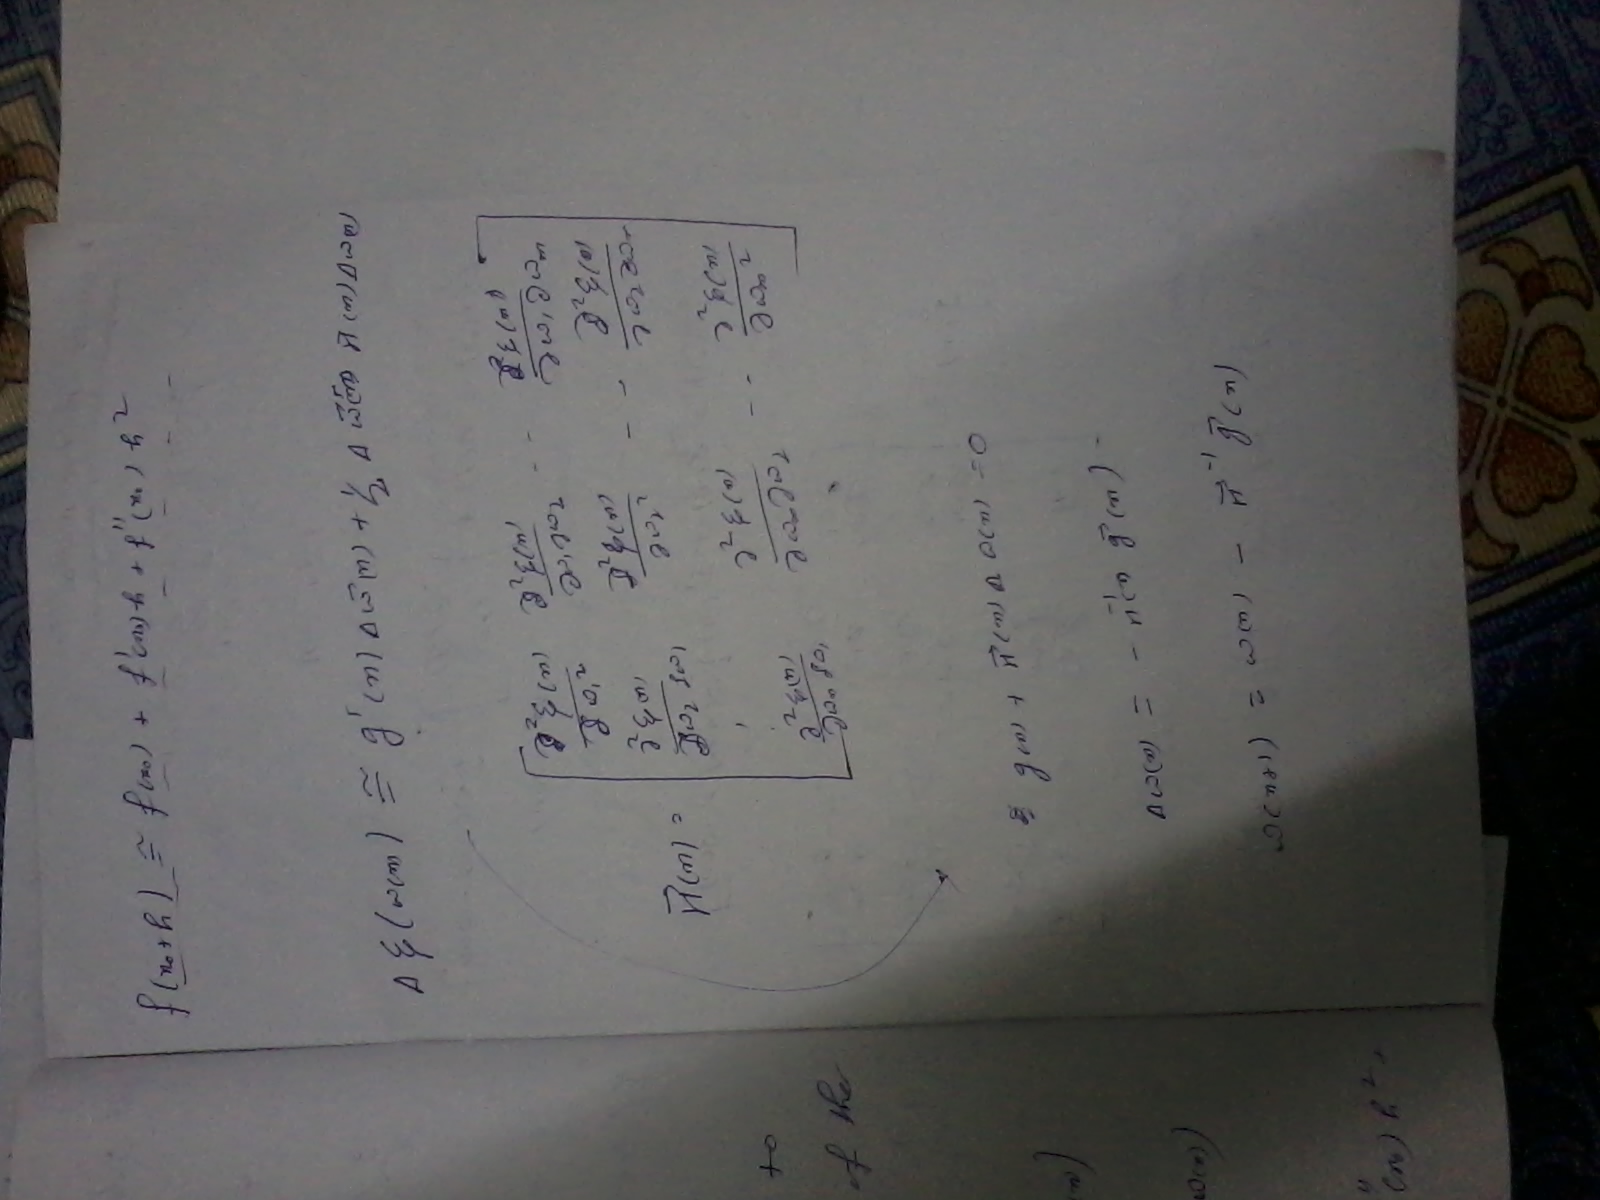 f(x₀+h) ≅ f(x₀) + f'(x₀)h + f''(x₀) h² - -
Δξ(ω(n)) ≅ g'(n) Δω(n) + 1/2 Δω(n) H(n) Δω(n)
H(n) = [ ∂²ξ(n)/∂ω₁² ∂²ξ(n)/∂ω₁∂ω₂ - - ∂²ξ(n)/∂ω₁∂ωₘ
∂²ξ(n)/∂ω₂∂ω₁ ∂²ξ(n)/∂ω₂² - - ∂²ξ(n)/∂ω₂∂ωₘ
∂²ξ(n)/∂ωₘ∂ω₁ ∂²ξ(n)/∂ωₘ∂ω₂ - - ∂²ξ(n)/∂ωₘ² ]
g(n) + H(n) Δω(n) = 0
Δω(n) = - H⁻¹(n) g(n)
ω(n+1) = ω(n) - H⁻¹ g(n)
of the